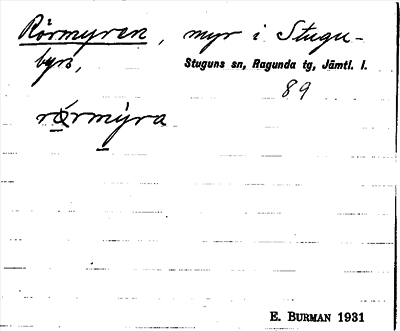 Rörmyren, myr i Stugu-
byn,
Stuguns sn, Ragunda tg, Jämtl. l.
89
rǿrmýra
E. BURMAN 1931